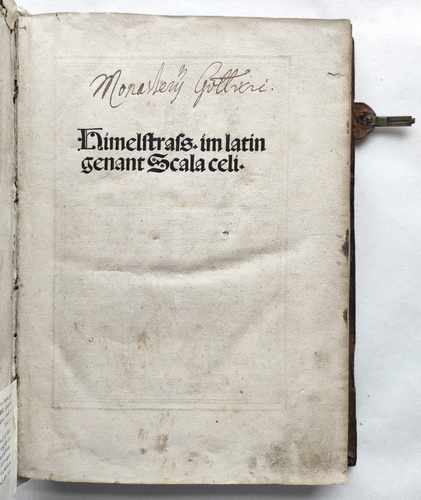 Monasterij Gottvici.
Himelstrass. im latin
genant Scala celi.